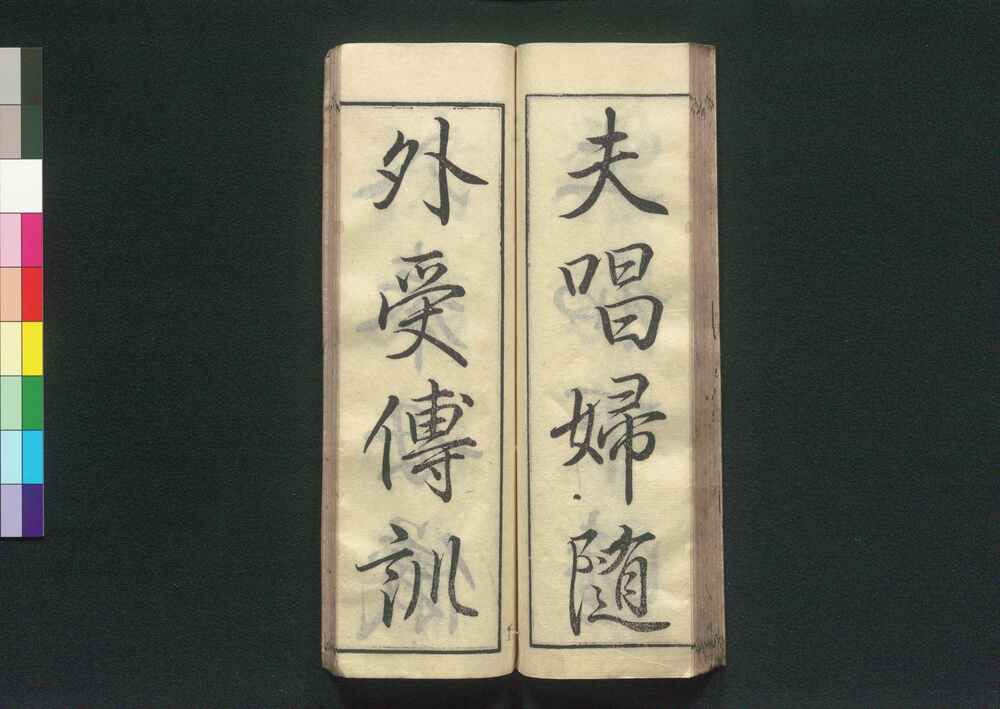 夫唱婦随
外受傅訓